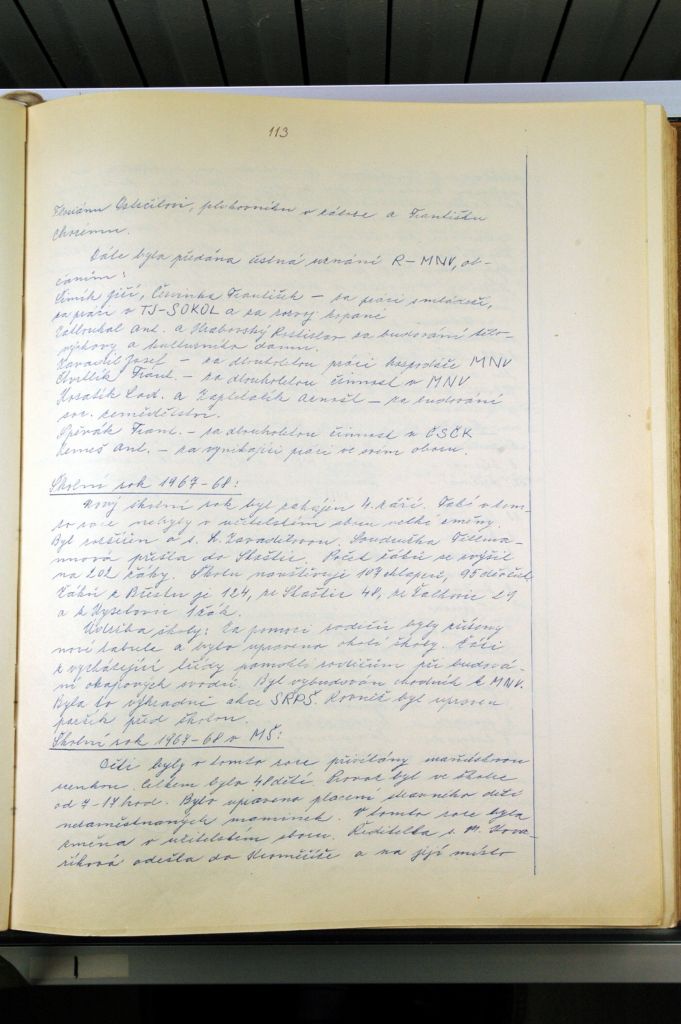 113
Floriánu Ostrčilovi, plukovníku v záloze a Františku
Chvézemu.
Dále byla předána čestná uznání R-MNV, ob-
čanům:
Šimík Jiří, Červinka František - za práci s mládeží,
za práci v TJ-SOKOL a za rozvoj kopané
Zatloukal Ant. a Hraborský Rostislav za budování tělo-
výchovy a kulturního domu.
Zavadil Josef - za dlouholetou práci hospodáře MNV
Chytlík Frant. - za dlouholetou činnost v MNV
Kosatík Lad. a Zapletalík Arnošt - za budování
soc. zemědělství.
Spěvák Frant. - za dlouholetou činnost v ČSČK
Nemeš Ant. - za vynikající práci ve svém oboru.
Školní rok 1967-68:
Nový školní rok byl zahájen 4. září. Také v tom-
to roce nebyly v učitelském sboru velké změny.
Byl rozšířen o s. H. Zavadilovou. Soudružka
přešla do Skaštic. Počet žáků se zvýšil
na 202 žáky. Školu navštěvuje 107 chlapců, 95 děvčat.
Žáků z Břestu je 124, ze Skaštic 48, ze Žalkovic 29
a z Kyselovic 1 žák.
Údržba školy: Za pomoci rodičů byly zřízeny
nové tabule a bylo upraveno okolí školy. Žáci
z vycházející třídy pomohli rodičům při budová-
ní okapových svodů. Byl vybudován chodník k MNV.
Byla to výhradní akce SRPŠ. Rovněž byl upraven
plošek před školou.
Školní rok 1967-68 v MŠ:
Děti byly v tomto roce přivítány maňáskovou
scenkou. Celkem bylo 48 dětí. Provoz byl ve školce
od 7-17 hod. Bylo upraveno placení stravného dětí
nezaměstnaných maminek. V tomto roce byla
změna v učitelském sboru. Ředitelka s. M. Kova-
říková odešla do Kroměříže a na její místo